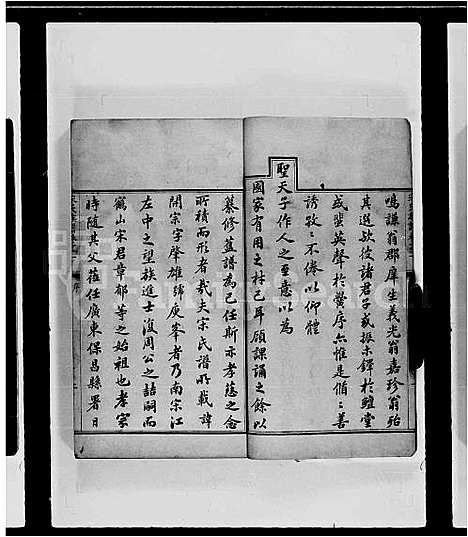 鳴謙翁郡庠生義光翁嘉珍翁殆
其選歟彼諸君子或振木鐸於鱣堂
或蜚英聲於黌序亦惟是循〻善
誘孜〻不倦以仰體
聖天子作人之至意以為
國家有用之材已耳顧課誦之餘以
纂修首譜為己任斯亦孝慈之念
所積而形者哉夫宋氏譜所載諱
開宗字肇雄號庾峯者乃南宋江
左中之望族進士復周公之喆嗣而
鶴山宋君章郁等之始祖也孝宗
時隨其父蒞任廣東保昌縣署日